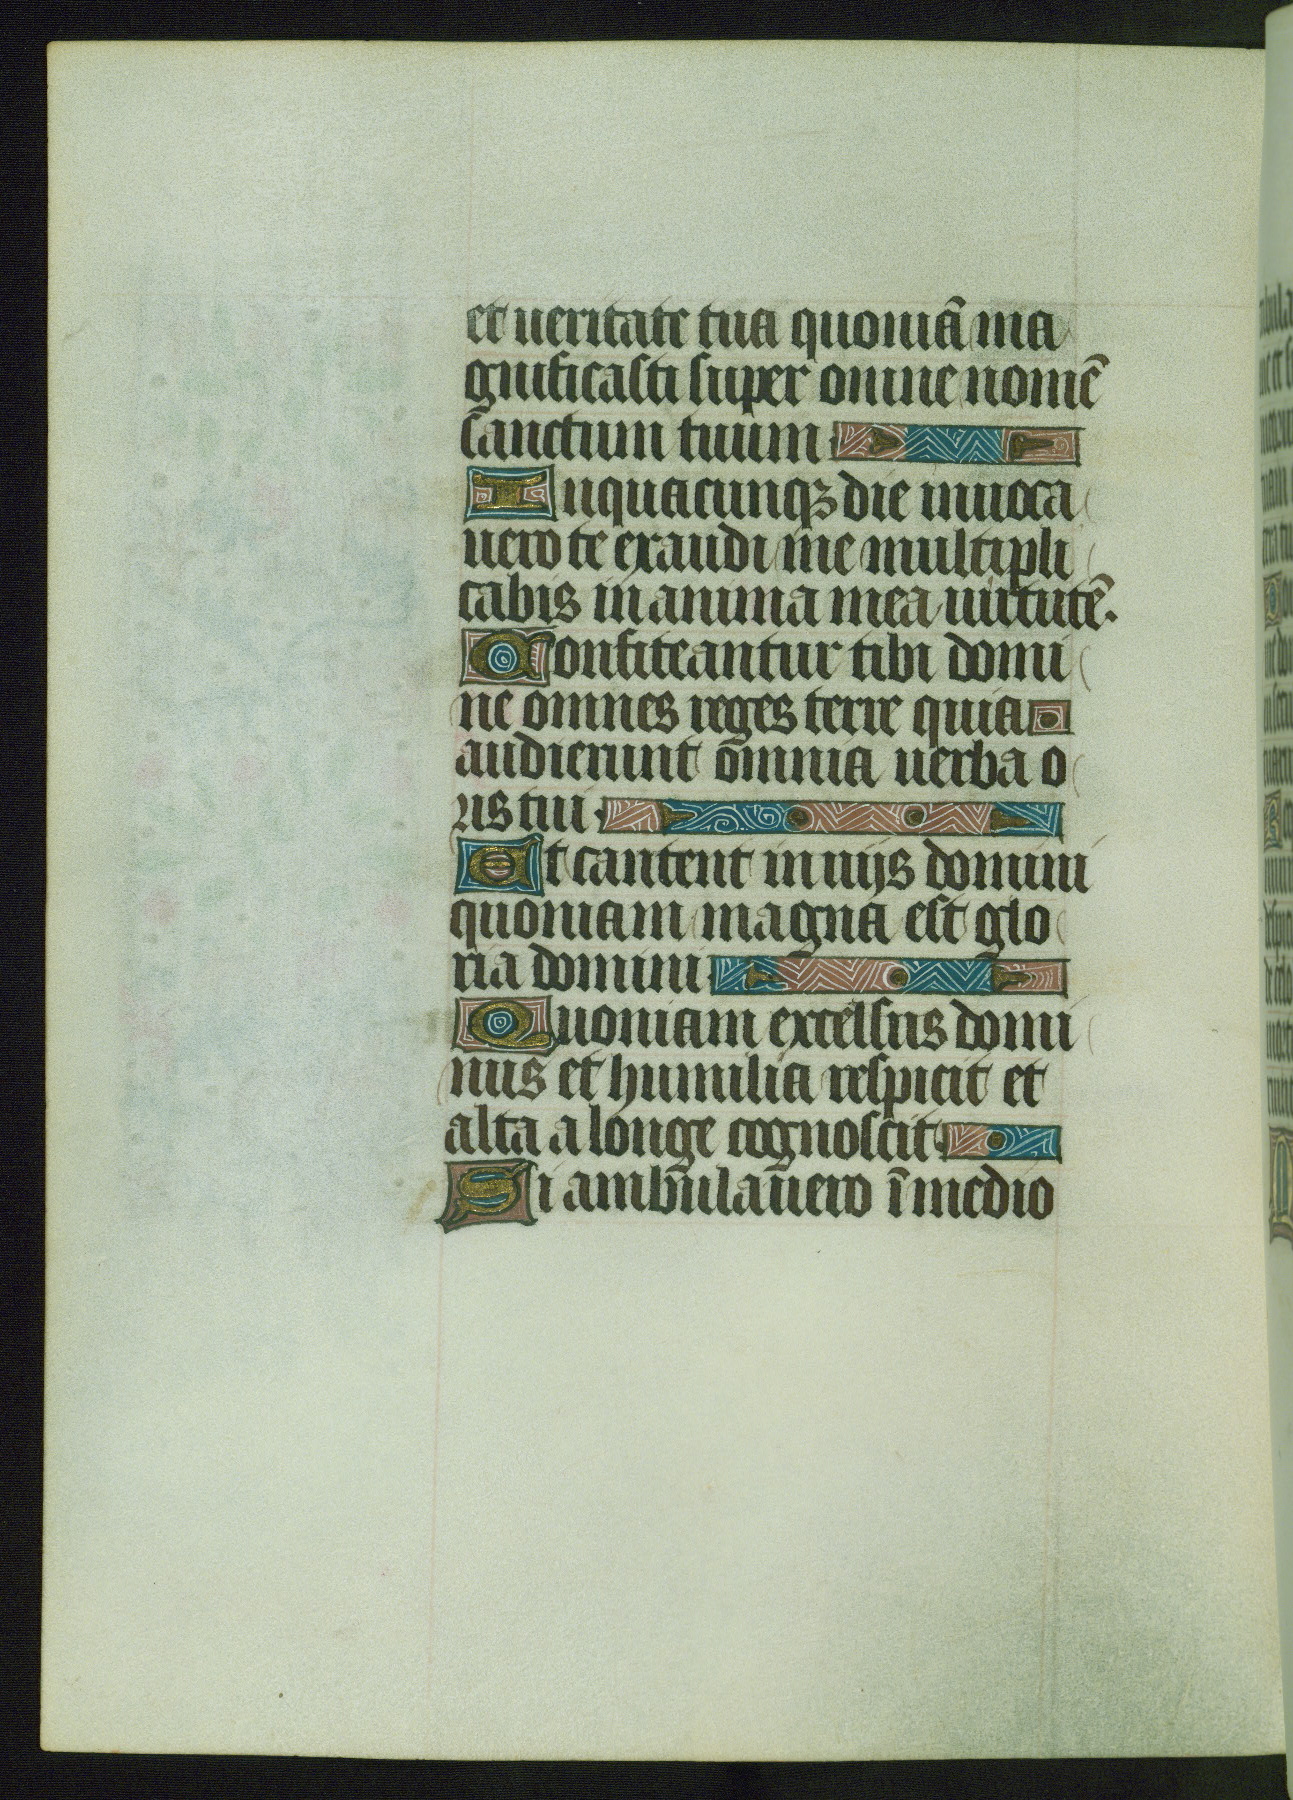 et ueritate tua quoniā ma
gnificasti super omne nomē
sanctum tuum
In quacunqꝫ die inuoca
uero te exaudi me multipli
cabis in anima mea uirtutē.
Confiteantur tibi domi
ne omnes reges terre quia
audierunt om̄nia uerba o
ris tui
Et cantent in uijs domini
quoniam magna est glo
ria domini
Quoniam excelsus domi
nus et humilia respicit et
alta a longe cognoscit
Si ambulauero ī medio